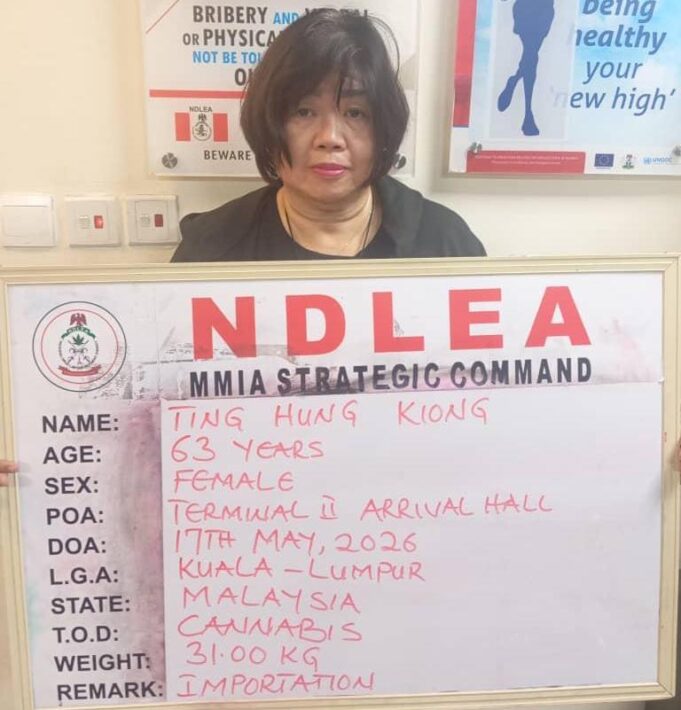 BRIBERY AND
OR PHYSICA
NOT BE TO
NDLEA
BEWARE
being
healthy
your
'new high'
UNODC
NDLEA
MMIA STRATEGIC COMMAND
NAME: TING HUNG KIONG
AGE: 63 YEARS
SEX: FEMALE
POA: TERMINAL II ARRIVAL HALL
DOA: 17TH MAY, 2026
L.G.A: KUALA-LUMPUR
STATE: MALAYSIA
T.O.D: CANNABIS
WEIGHT: 31.00 KG
REMARK: IMPORTATION